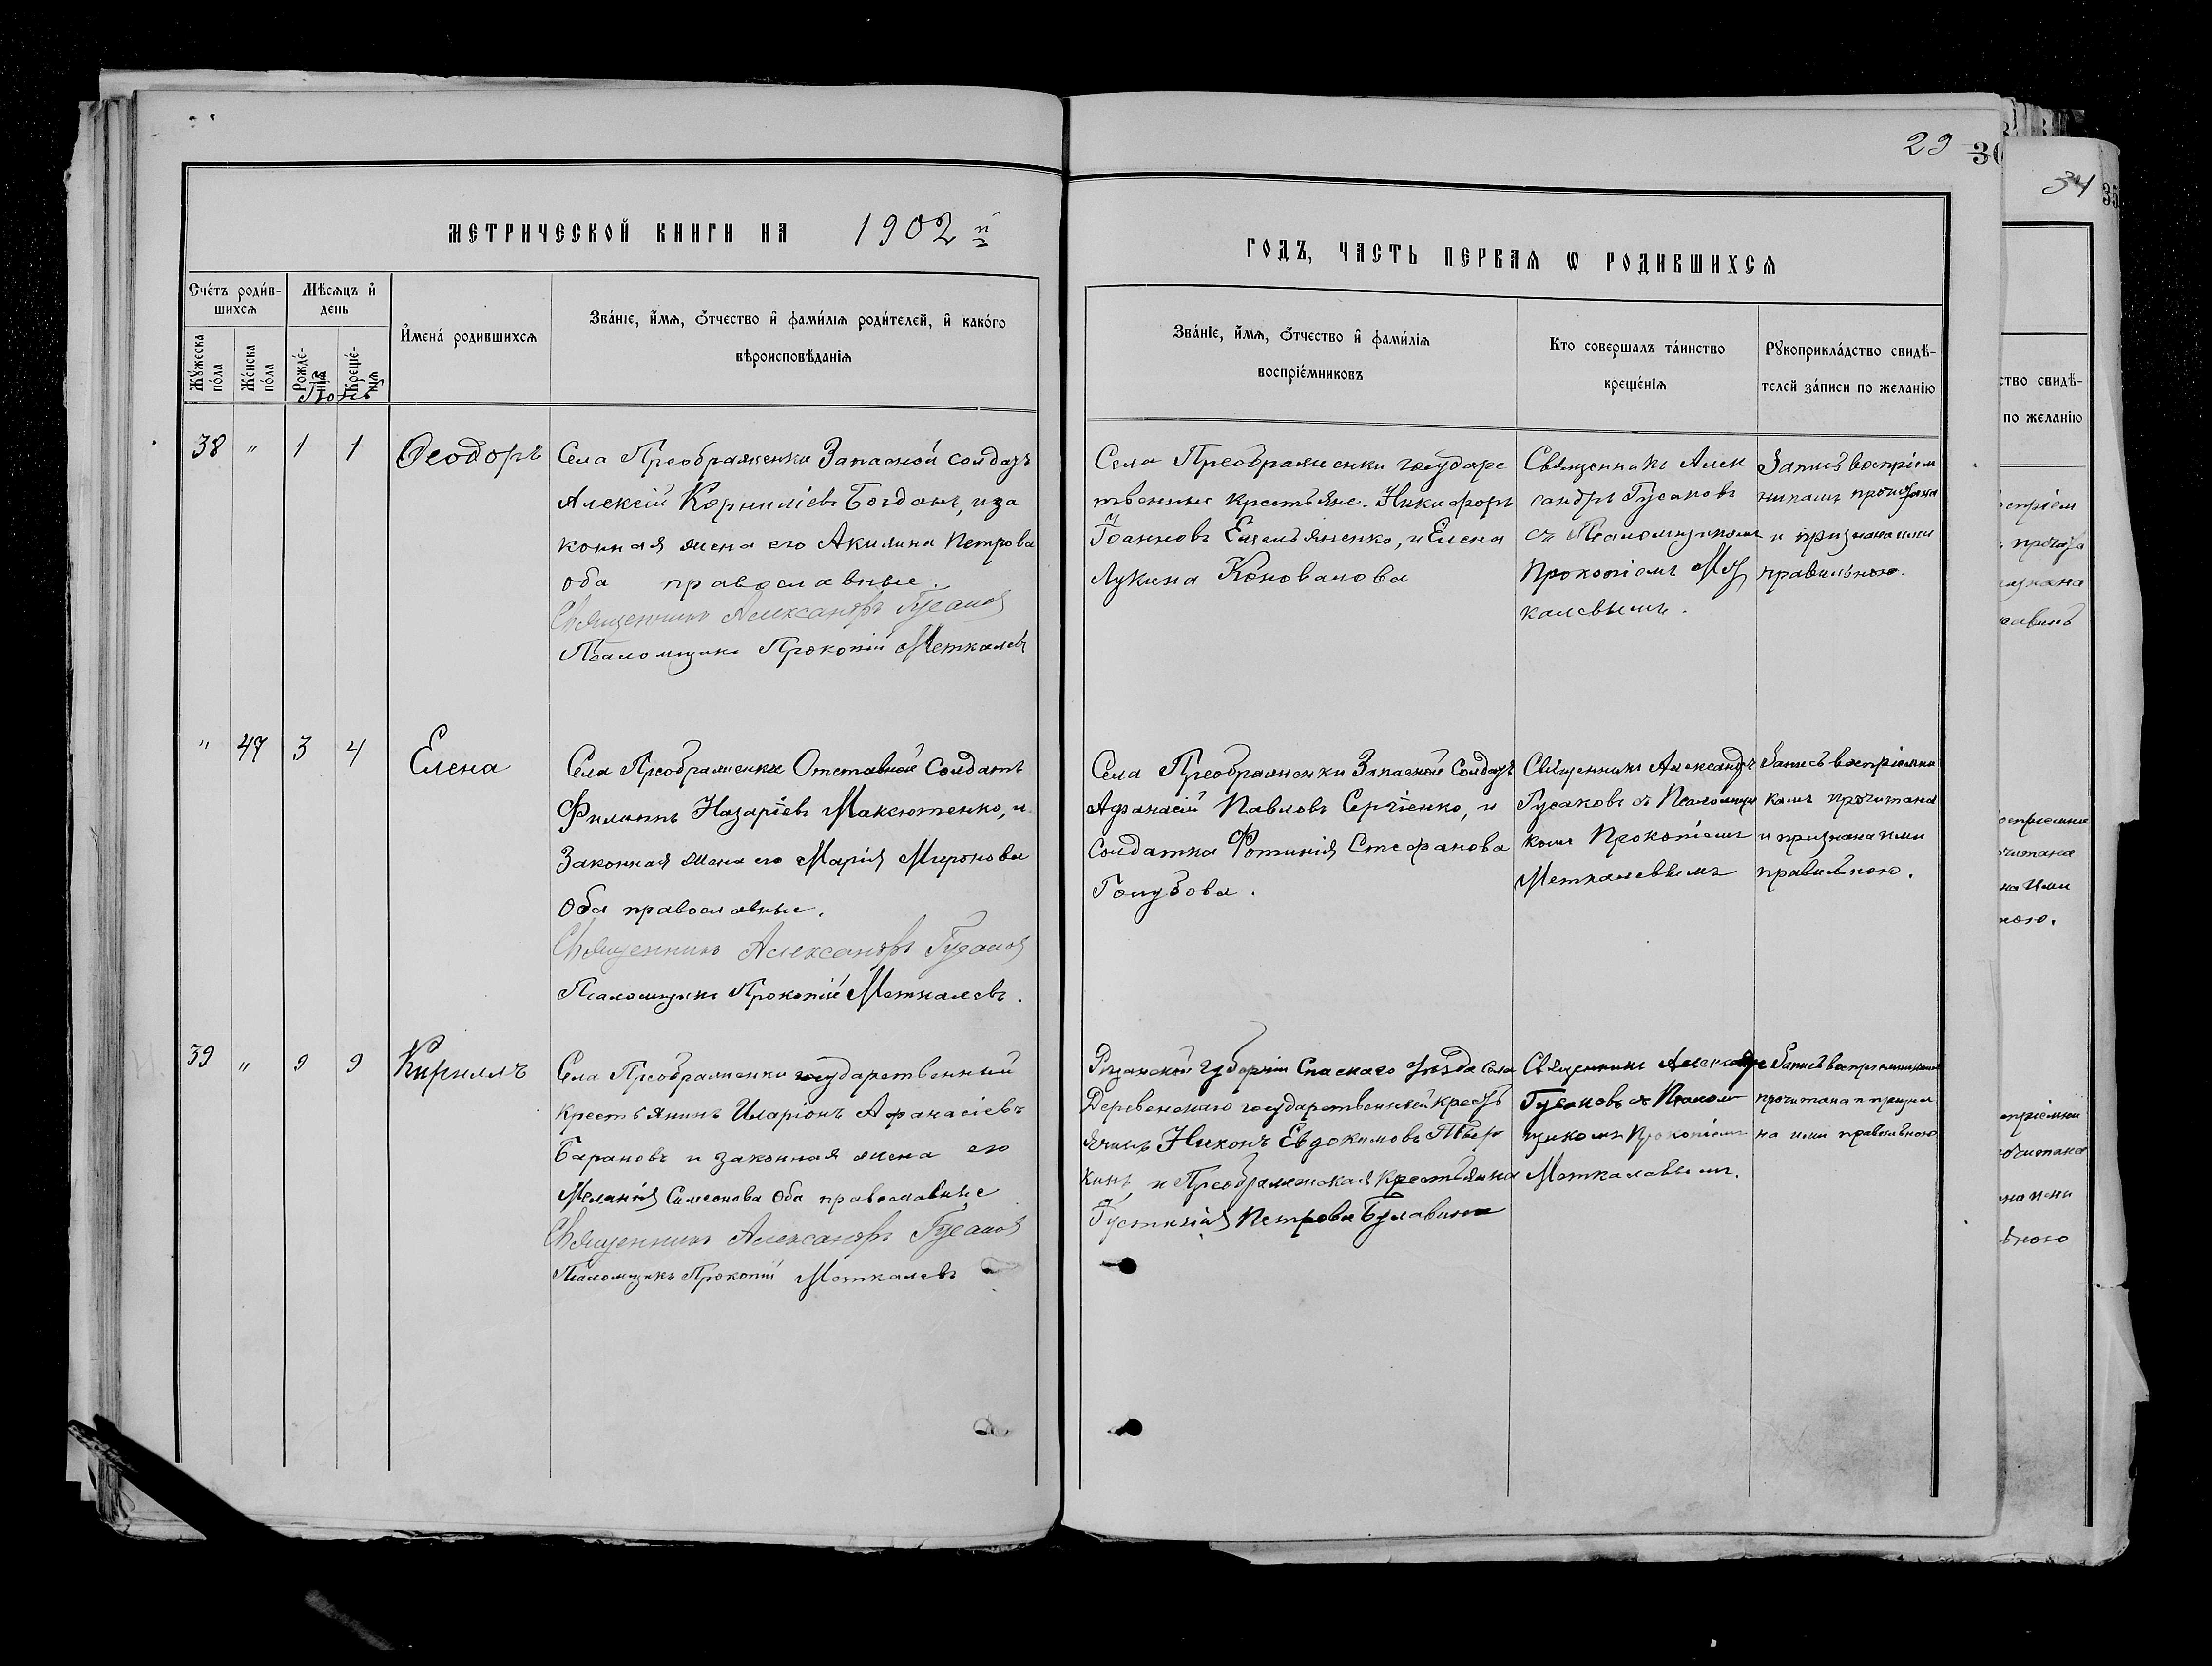 29 30
34 35
МЕТРИЧЕСКОЙ КНИГИ НА 1902 й
ГОДЪ, ЧАСТЬ ПЕРВАЯ Ѡ РОДИВШИХСЯ
Счéтъ роди́в-
шихся
Мѣсяцъ и҆
день
Му́жеска по́ла
Же́нска по́ла
Рожде́-нія
Креще́-нія
Іюнь
И҆мена́ родившихся
Зва́ніе, и҆́мя, ѻ҆́тчество и҆ фами́лія роди́телей, и҆ како́го
вѣроисповѣ́данія
Зва́ніе, и҆́мя, ѻ҆́тчество и҆ фами́лія
воспріе́мниковъ
Кто совершалъ та́инство
креще́нія
Рꙋкоприкла́дство свидѣ́-
телей за́писи по желанію
38 " 1 1 Ѳеодоръ
Села Преображенки Запасной солдатъ
Алексій Корниліевъ Богданъ, и за
конная жена его Акилина Петрова
оба православные.
Священникъ Александръ Гусаковъ
Псаломщикъ Прокопій Меткалевъ
Села Преображенки государс
твенные крестьяне. Никифоръ
Іоанновъ Емельяненко, и Елена
Лукина Коновалова
Священникъ Алек
сандръ Гусаковъ
съ Псаломщикомъ
Прокопіемъ Мет
калевымъ.
Запись воспріем
никамъ прочитана
и признана ими
правильною.
" 47 3 4 Елена
Села Преображенки Отставной Солдатъ
Филиппъ Назаріевъ Максютенко, и
Законная жена его Марія Миронова
Оба православные.
Священникъ Александръ Гусаковъ
Псаломщикъ Прокопій Меткалевъ.
Села Преображенки Запасной Солдатъ
Афанасій Павловъ Сергіенко, и
Солдатка Фотинія Стефанова
Голубова.
Священникъ Александръ
Гусаковъ съ Псаломщи
комъ Прокопіемъ
Меткалевымъ
Запись воспріемни
камъ прочитана
и признана ими
правильною.
39 " 9 9 Кириллъ
Села Преображенки государственный
крестьянинъ Иларіонъ Афанасіевъ
Барановъ и законная жена его
Меланія Симеонова Оба православные
Священникъ Александръ Гусаковъ
Псаломщикъ Прокопій Меткалевъ
Рязанской губерніи Спаскаго Уѣзда Села
Деревенскаго государственный кресть
янинъ Никонъ Евдокимовъ
и Преображенская Крестьянка
Іустинія Петрова Булавина
Священникъ Александръ
Гусаковъ съ Псалом
щикомъ Прокопіемъ
Меткалевымъ.
Запись воспріемникамъ
прочитана и призна
на ими правильною
ство свидѣ-
по желанію